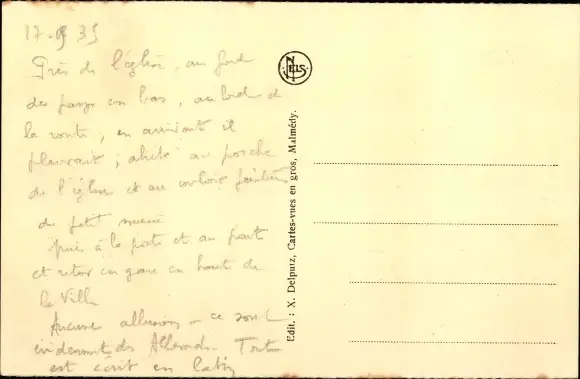 17-9 35
Près de l'église, au fond
des pays en bas, au bord de
la route, en arrivant il
pleuvait; abrité au porche
de l'église et au
du petit
puis à la poste et au pont
et retour en gare en haut de
la Ville
Aucune allusion - ce sont
évidemment des Allemands. Tout
est écrit en latin
NELS
Edit. : X. Delputz, Cartes-vues en gros, Malmédy.